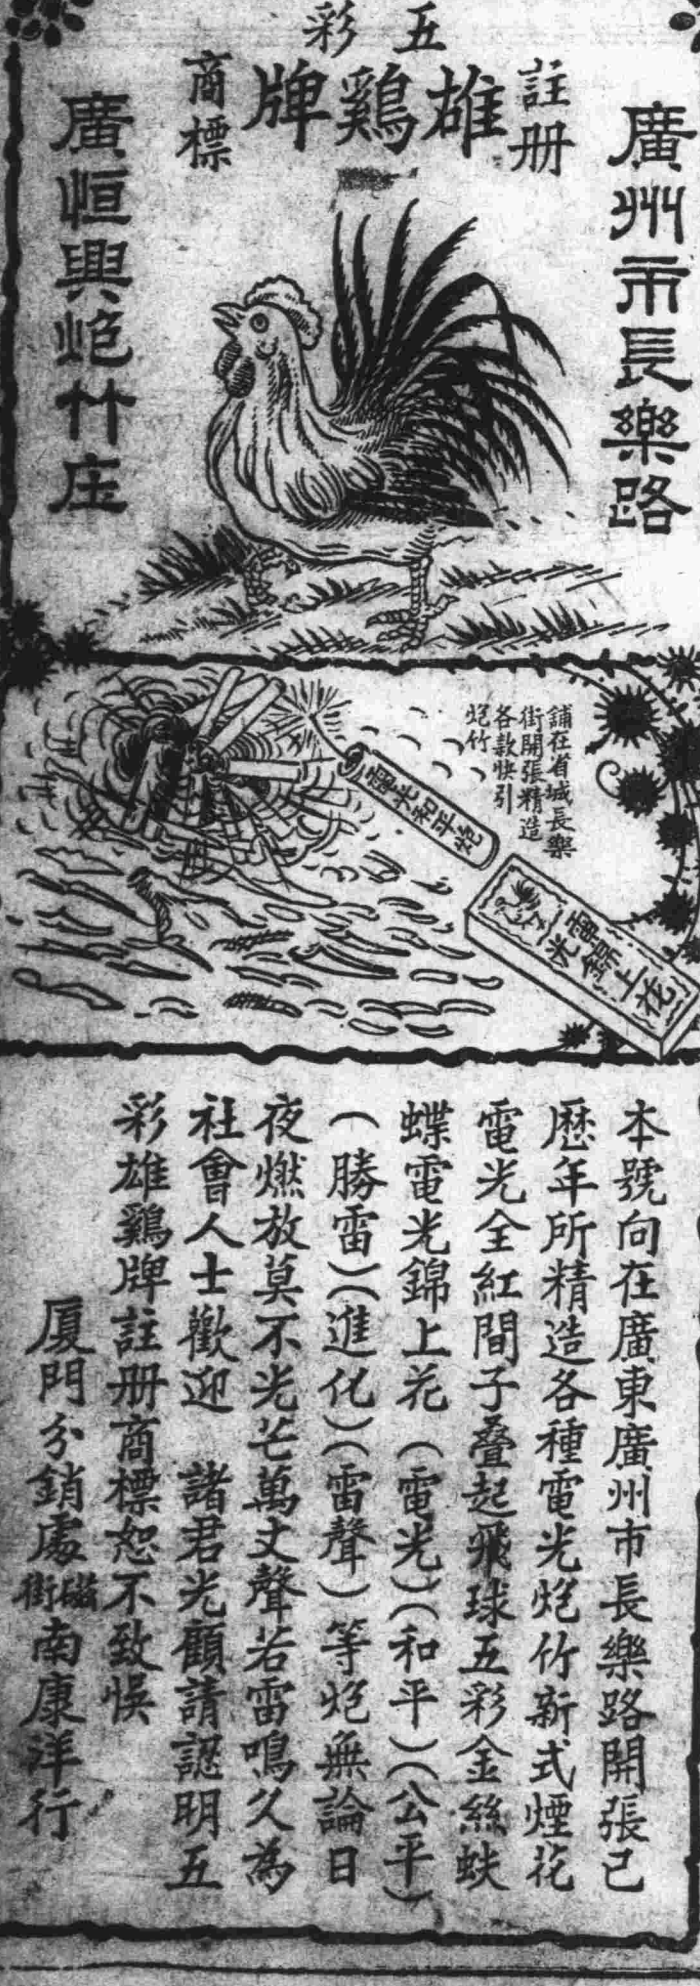 五彩
註册
雄鷄牌
商標
廣州市長樂路
廣恒興炮竹庄
舖在省城長樂
街開張精造
各款快引
炮竹
電光和平炮
電光
錦上花
本號向在廣東廣州市長樂路開張已
歷年所精造各種電光炮竹新式煙花
電光全紅間子叠起飛球五彩金絲蚨
蝶電光錦上花（電光）（和平）（公平）
（勝雷）（進化）（雷聲）等炮無論日
夜燃放莫不光芒萬丈聲若雷鳴久為
社會人士歡迎　諸君光顧請認明五
彩雄鷄牌註册商標恕不致悞
厦門分銷處磁街南康洋行